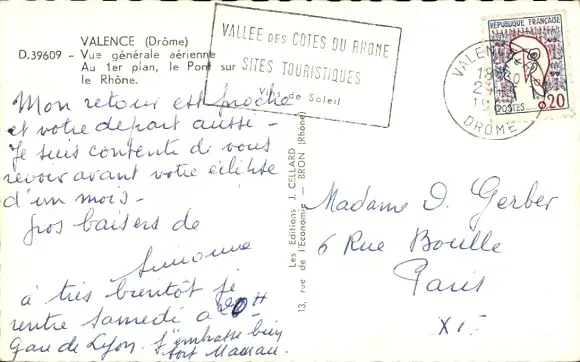 VALENCE (Drôme)
D.39609 - Vue générale aérienne
Au 1er plan, le Pont sur
le Rhône.
VALLEE DES COTES DU RHONE
SITES TOURISTIQUES
Vins de Soleil
REPUBLIQUE FRANÇAISE
0,20
POSTES
VALENCE
18 H 30
DROME
Mon retour est proche
et votre départ aussi -
Je suis contente de vous
revoir avant votre éclipse
d'un mois -
Gros baisers de
Simonne
à très bientôt je
rentre samedi à 20H
Gare de Lyon. J'embrasse bien
fort Maman.
Les Editions J. CELLARD
13, rue de l'Economie - BRON (Rhône)
Madame D. Gerber
6 Rue Boulle
Paris
XIe